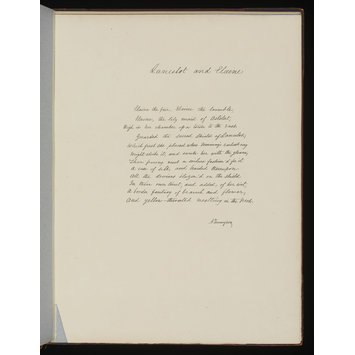 Lancelot and Elaine
Elaine the fair, Elaine the lovable,
Elaine, the lily maid of Astolat,
High in her chamber up a tower to the east
Guarded the sacred shield of Lancelot;
Which first she placed where morning's earliest ray
Might strike it, and awake her with the gleam;
Then fearing rust or soilure fashion'd for it
A case of silk, and braided thereupon
All the devices blazon'd on the shield
In their own tinct, and added, of her wit,
A border fantasy of branch and flower,
And yellow-throated nestling in the nest.
A Tennyson